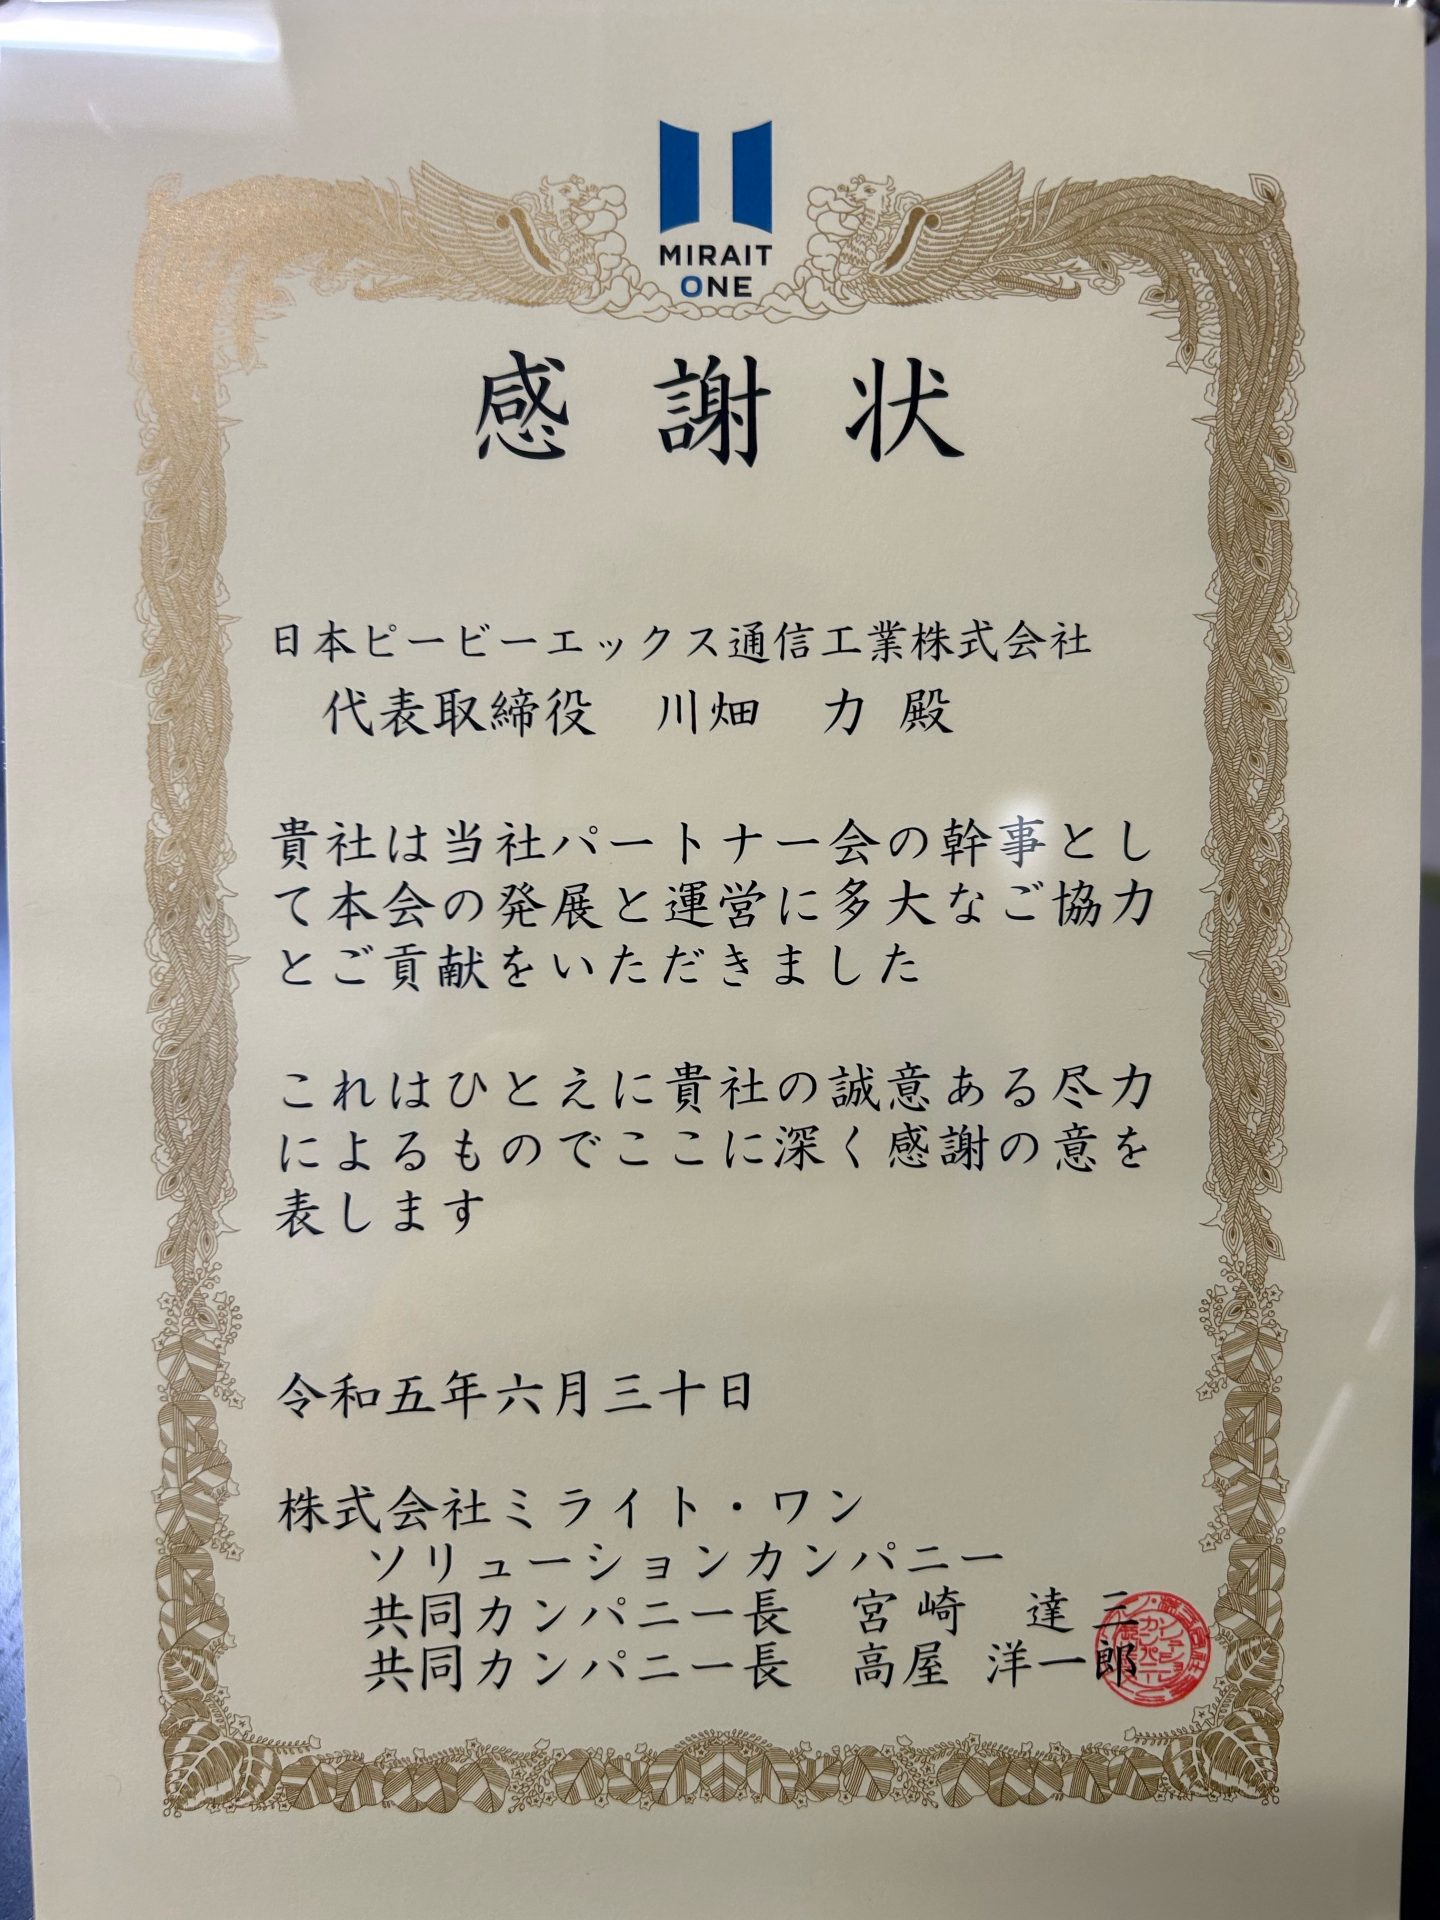 MIRAIT
ONE
感謝状
日本ピービーエックス通信工業株式会社
代表取締役 川畑 力 殿
貴社は当社パートナー会の幹事とし
て本会の発展と運営に多大なご協力
とご貢献をいただきました
これはひとえに貴社の誠意ある尽力
によるものでここに深く感謝の意を
表します
令和五年六月三十日
株式会社ミライト・ワン
ソリューションカンパニー
共同カンパニー長 宮崎 達三
共同カンパニー長 高屋 洋一郎